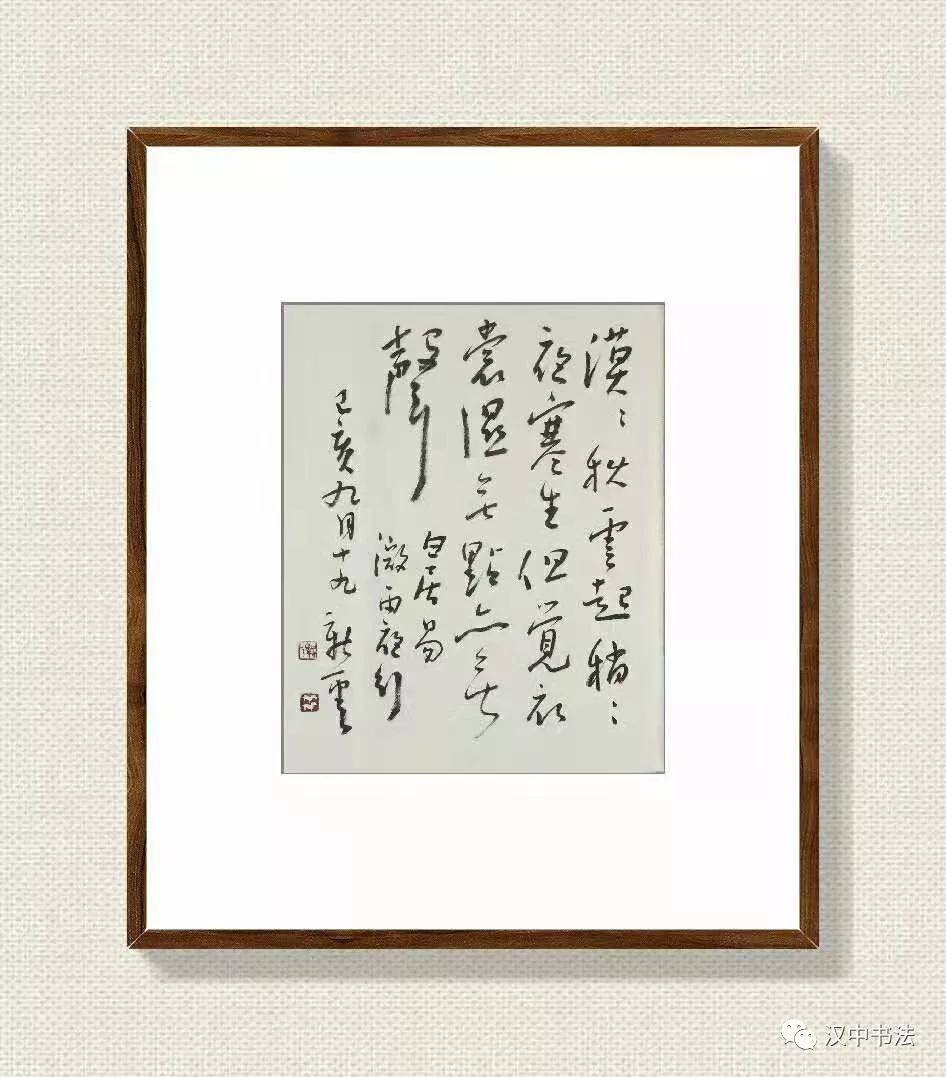 漠〻秋雲起稍〻
夜寒生但覺衣
裳濕無點亦無
聲
白居易
微雨夜行
己亥九月十九新雲
汉中书法